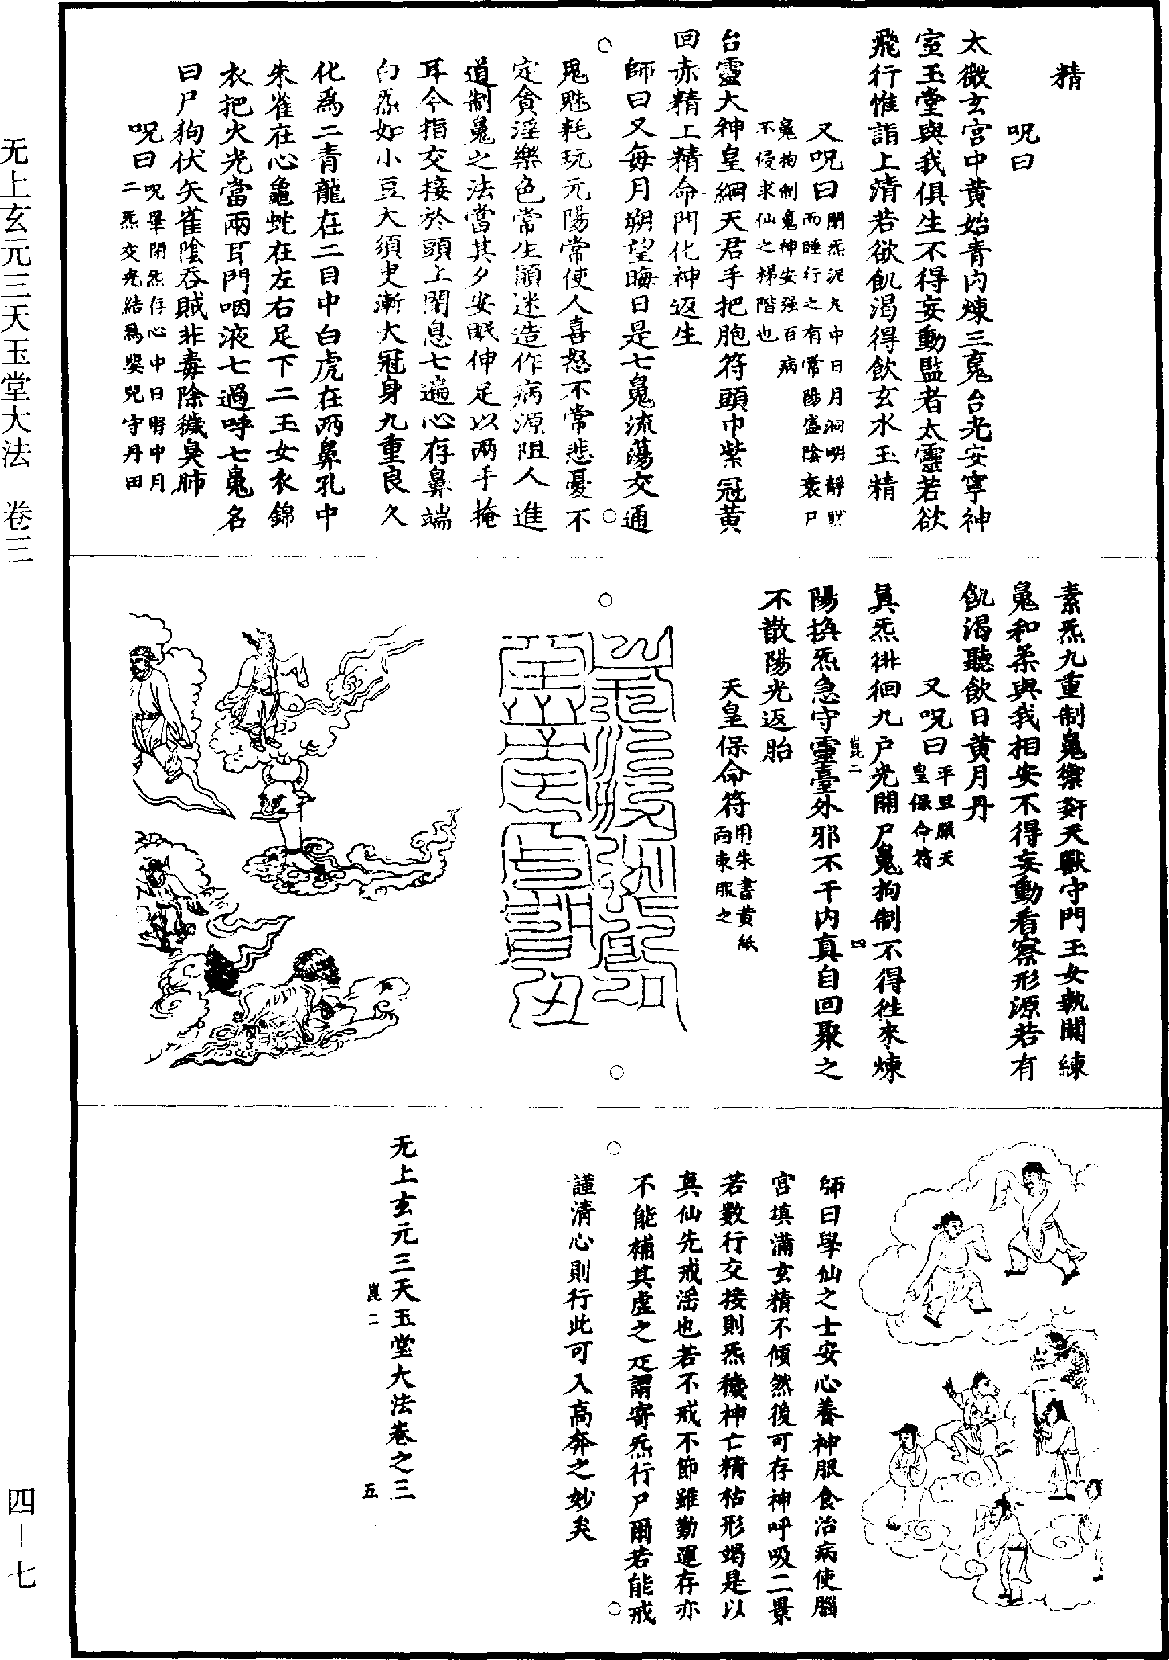 精
呪曰
太微玄宮中黃始青內煉三䰟台光安寧神
室玉堂與我俱生不得妄動監者太靈若欲
飛行惟詣上清若欲飢渴得飲玄水玉精
又呪曰閉炁泥丸中日月洞明靜默
而睡行之有常陽盛陰衰尸
䰟拘制䰟神安强百病
不侵求仙之梯階也
台靈大神皇綱天君手把胞符頭巾紫冠黃
回赤精上精命門化神返生
師曰又每月朔望晦日是七䰟流蕩交通
鬼魅耗玩元陽常使人喜怒不常悲憂不
定貪淫樂色常生顚迷造作病源阻人進
道制䰟之法當其夕安眠伸足以兩手掩
耳令指交接於頭上閉息七遍心存鼻端
白炁如小豆大須史漸大冠身九重良久
化爲二青龍在二目中白虎在兩鼻孔中
朱雀在心龜虵在左右足下二玉女衣錦
衣把火光當兩耳門咽液七過呼七䰟名
曰尸狗伏矢雀陰吞賊非毒除穢臭肺
呪曰呪畢閉炁存心中日腎中月
二炁交光結爲嬰兒守丹田
素炁九重制䰟禦姧天獸守門玉女執關練
䰟和柔與我相安不得妄動看察形源若有
飢渴聽飲日黃月丹
又呪曰平旦服天
皇保命符
眞炁徘徊九戶光開尸䰟拘制不得徃來煉
崑二
四
陽換炁急守靈臺外邪不干內真自回聚之
不散陽光返胎
天皇保命符用朱書黃紙
向東服之
師曰學仙之士安心養神服食治病使腦
宮填滿玄精不傾然後可存神呼吸二景
若數行交接則炁穢神亡精枯形竭是以
真仙先戒淫也若不戒不節雖勤運存亦
不能補其虛之疋謂寄炁行尸爾若能戒
謹清心則行此可入高奔之妙矣
无上玄元三天玉堂大法卷之三
崑二
五
无上玄元三天玉堂大法 卷三
四—七